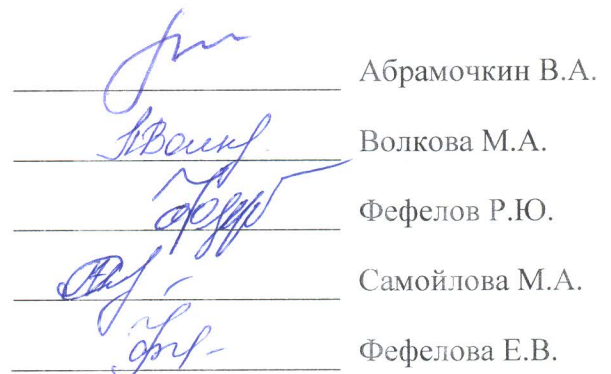 Абрамочкин В.А.
Волкова М.А.
Фефелов Р.Ю.
Самойлова М.А.
Фефелова Е.В.